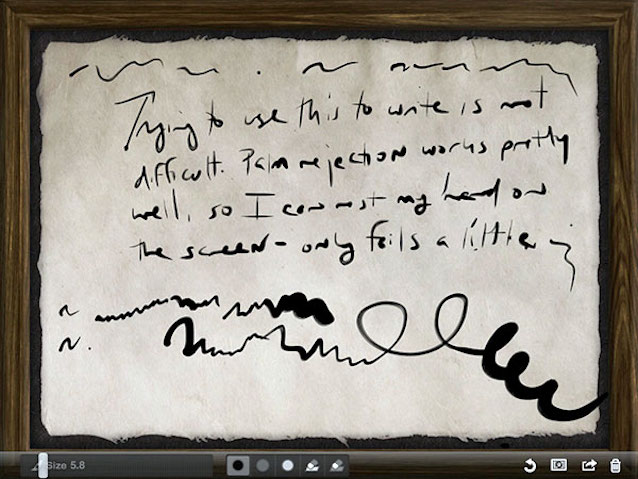 Trying to use this to write is not
difficult. Palm rejection works pretty
well, so I can rest my hand on
the screen - only fails a little
Size 5.8